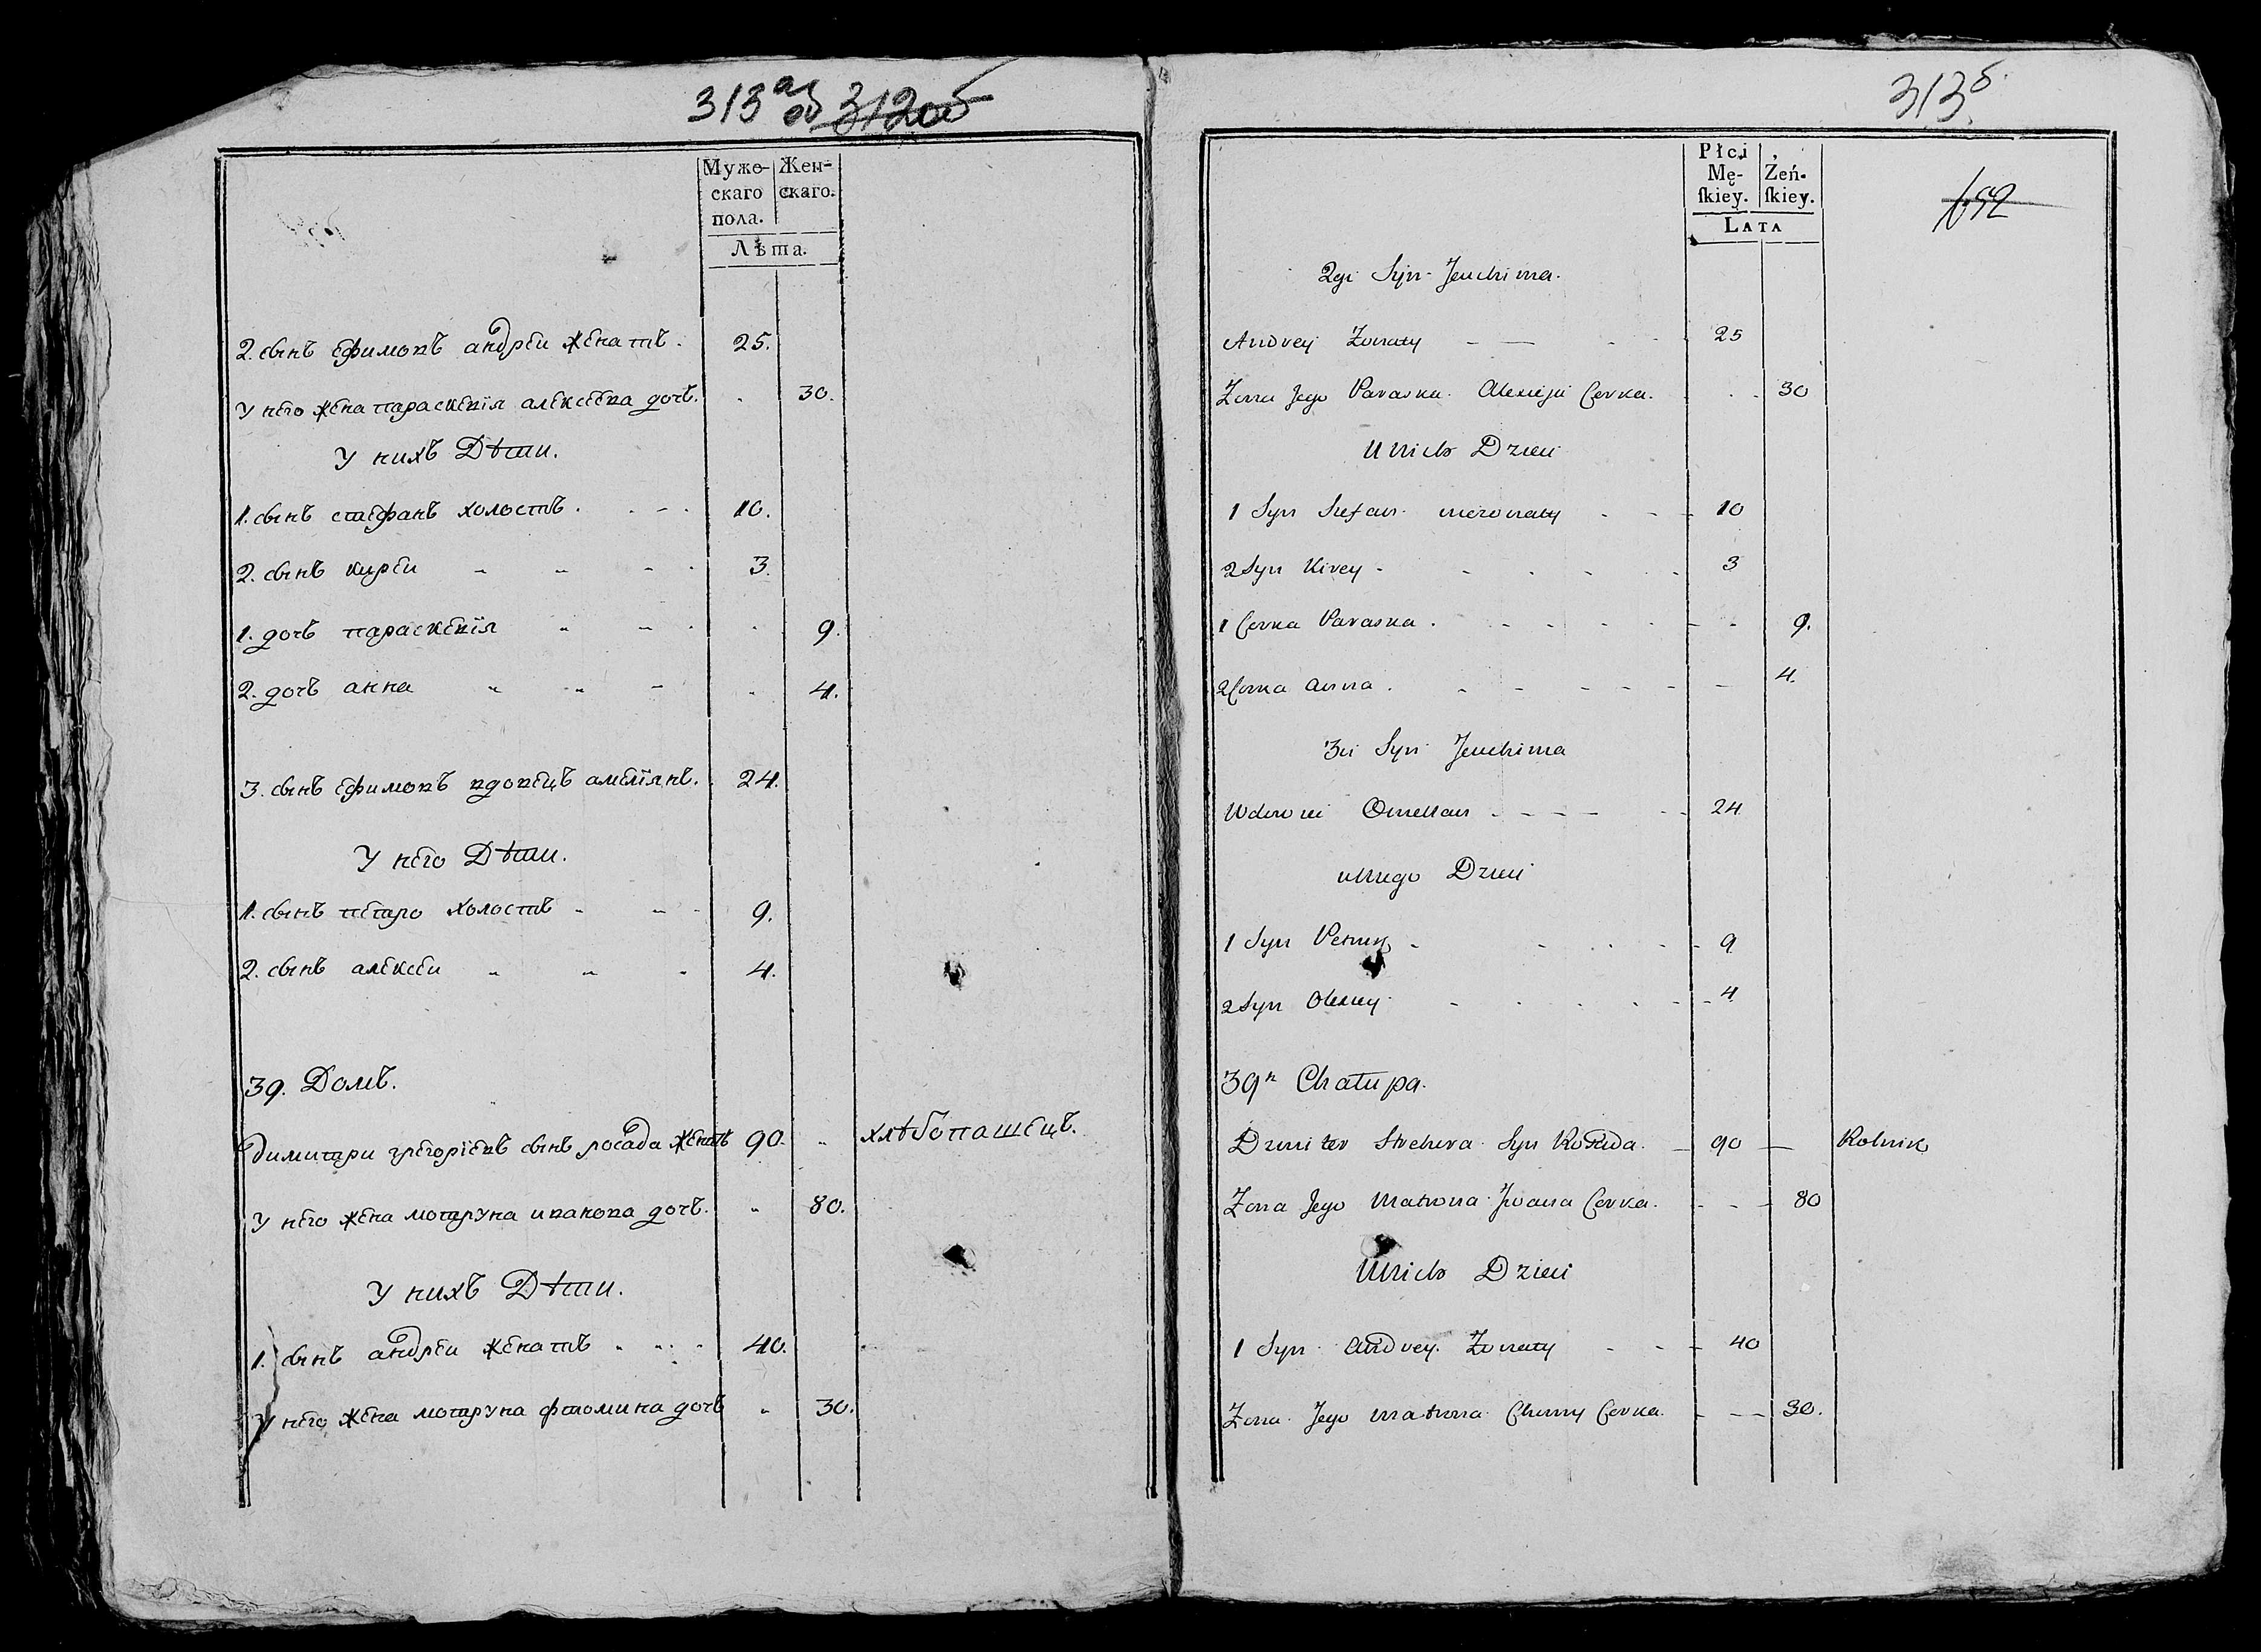 313а об 312об
Муже- Жен-
скаго скаго.
пола.
Лѣта.
2. сынъ ефимовъ андреи женатъ. 25.
У него жена параскевія алексеева дочъ. 30.
У нихъ Дѣти.
1. сынъ стефанъ холостъ. 10.
2. сынъ киреи 3.
1. дочъ параскевія 9.
2. дочъ анна 4.
3. сынъ ефимовъ вдовецъ амелянъ. 24.
У него Дѣти.
1. сынъ петро холостъ 9.
2. сынъ алексеи 4.
39. Домъ.
димитри григоріевъ сынъ росада женатъ 90. хлѣбопашецъ.
У него жена мотруна иванова дочъ. 80.
У нихъ Дѣти.
1. сынъ андреи женатъ 40.
У него жена мотруна фтомина дочъ 30.
313б.
Płci
Mę- Żeń-
ſkiey. ſkiey.
LATA
652
2gi Syn Jeuchima.
Andrey Zonaty 25
Zona Jego Paraska Alexieja Corka. 30
U nich Dzieci
1 Syn Stefan niezonaty 10
2 Syn Kirey 3
1 Corka Paraska. 9.
2 Corka Anna. 4.
3ci Syn Jeuchima
Wdowiec Omelian 24
u niego Dzieci
1 Syn Petruk 9
2 Syn Olexiey 4
39a Chałupa.
Dzmiter Syn 90 Rolnik
Zona Jego Matrona Jwana Corka. 80
U nich Dzieci
1 Syn Andrey Zonaty 40
Zona Jego Matrona Chomy Corka. 30.